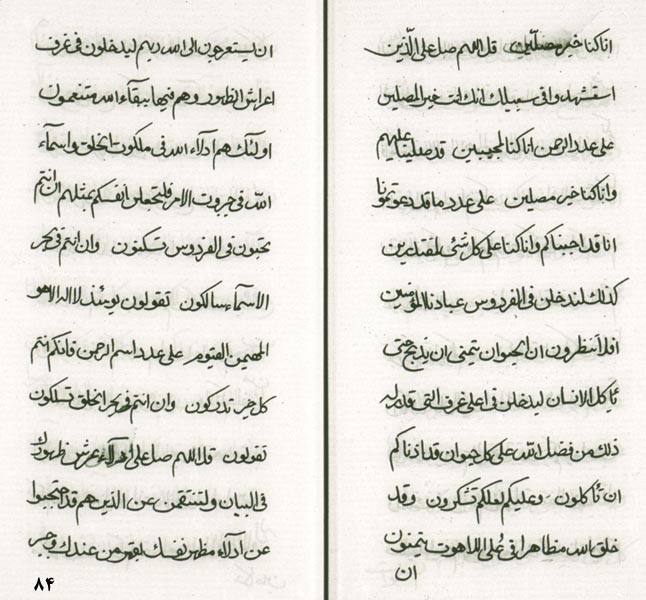 اناكنا خير مصلين قل اللهم صل على الذين
استشهدوا فى سبيلك انك انت خير المصلين
على عدد الرحمن اناكنا لمجيبين قد صلينا عليهم
واناكنا خير مصلين على عدد ما قد دعوتمونا
انا قد اجبناكم واناكنا على كل شئ لمقتدرين
كذلك لندخلن فى الفردوس عبادنا المؤمنين
افلا تنظرون ان الحيوان يتمنى ان يذبح حتى
ياكل الانسان ليدخلن فى اعلى غرف التى قدر له
ذلك من فضل الله على كل حيوان قد اذناكم
ان تأكلون وعليكم لعلكم تشكرون وقد
خلق الله مظاهرا فى على اللاهوت يتمنون
ان
ان يستعرجون الى الله ربهم ليدخلون فى غرف
اعراش الظهور وهم فيها ببقاء الله متنعمون
اولئك هم ادلاء الله فى ملكوت الخلق واسماء
الله فى جبروت الامر فلتجعلن انفسكم بمثلهم ان انتم
تحبون فى الفردوس تسكنون وان انتم فى بحر
الاسماء سالكون تقولون يومئذ لا اله الا هو
المهيمن القيوم على عدد اسم الرحمن فانكم انتم
كل خير تدركون وان انتم فى بحر الخلق تسلكون
تقولون قل اللهم صل على ادلاء عرش ظهورك
فى البيان ولتنتقمن عن الذين هم قد احتجبوا
عن ادلاء مظهر نفسك بقهر من عندك وجبر
۸۴